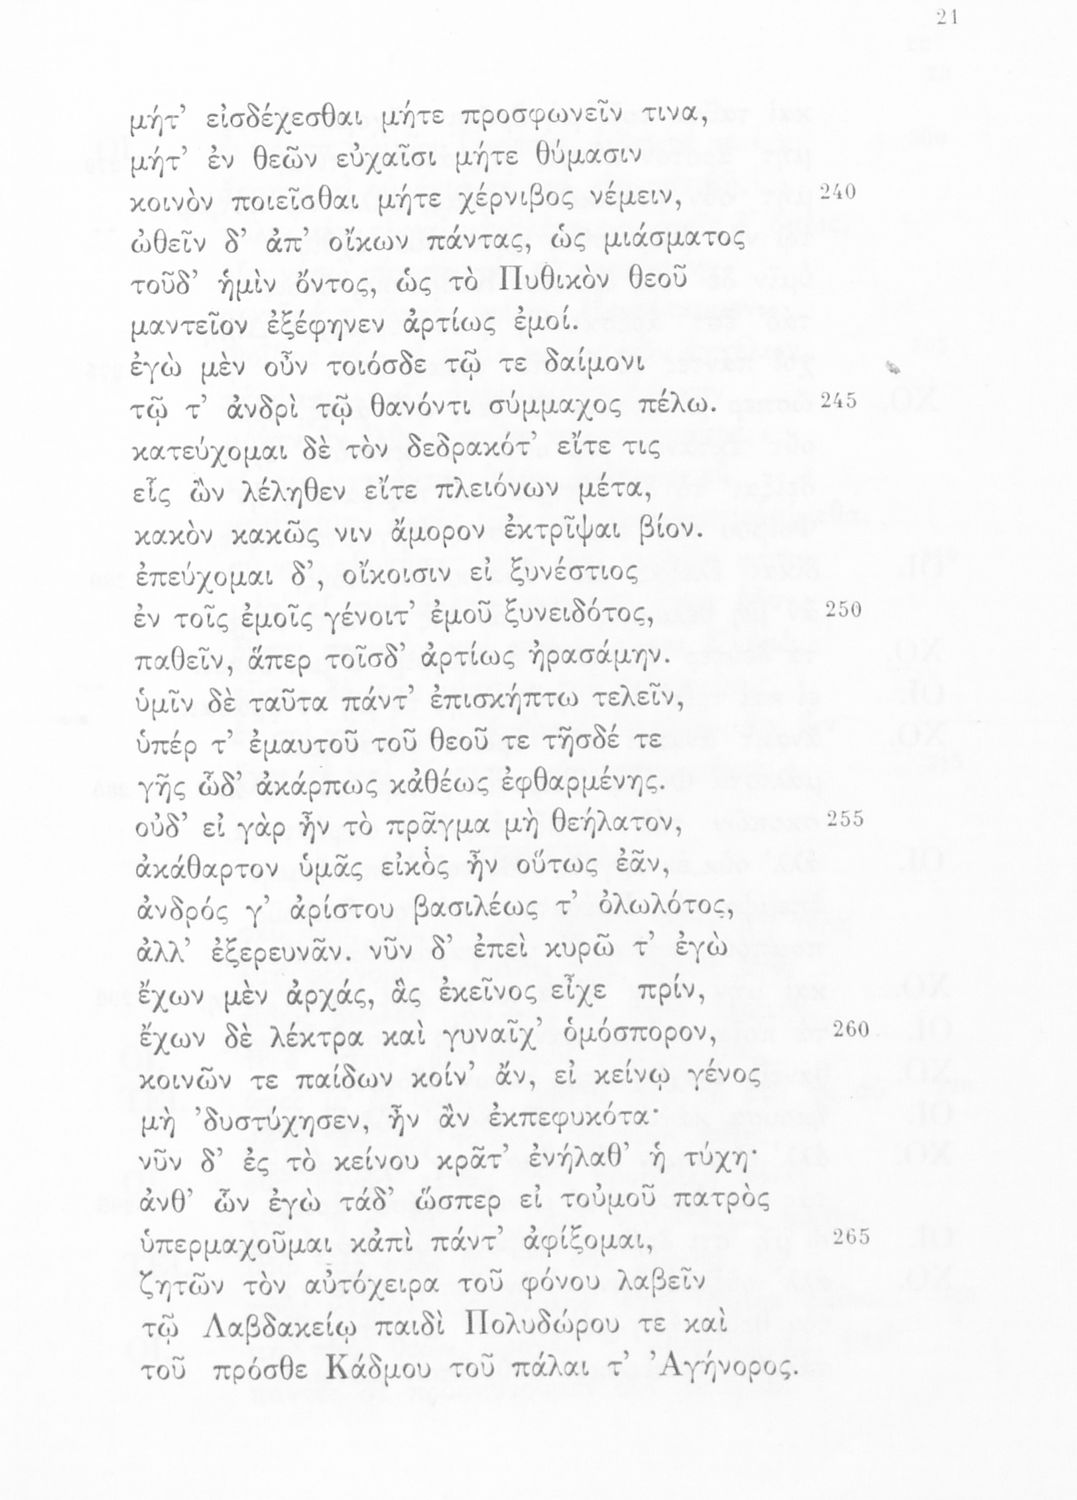 21
μήτ’ εἰσδέχεσθαι μήτε προσφωνεῖν τινα,
μήτ’ ἐν θεῶν εὐχαῖσι μήτε θύμασιν
κοινὸν ποιεῖσθαι μήτε χέρνιβος νέμειν, 240
ὠθεῖν δ’ ἀπ’ οἴκων πάντας, ὡς μιάσματος
τοῦδ’ ἡμὶν ὄντος, ὡς τὸ Πυθικὸν θεοῦ
μαντεῖον ἐξέφηνεν ἀρτίως ἐμοί.
ἐγὼ μὲν οὖν τοιόσδε τῷ τε δαίμονι
τῷ τ’ ἀνδρὶ τῷ θανόντι σύμμαχος πέλω. 245
κατεύχομαι δὲ τὸν δεδρακότ’ εἴτε τις
εἷς ὢν λέληθεν εἴτε πλειόνων μέτα,
κακὸν κακῶς νιν ἄμορον ἐκτρῖψαι βίον.
ἐπεύχομαι δ’, οἴκοισιν εἰ ξυνέστιος
ἐν τοῖς ἐμοῖς γένοιτ’ ἐμοῦ ξυνειδότος, 250
παθεῖν, ἅπερ τοῖσδ’ ἀρτίως ἠρασάμην.
ὑμῖν δὲ ταῦτα πάντ’ ἐπισκήπτω τελεῖν,
ὑπέρ τ’ ἐμαυτοῦ τοῦ θεοῦ τε τῆσδέ τε
γῆς ὧδ’ ἀκάρπως κἀθέως ἐφθαρμένης.
οὐδ’ εἰ γὰρ ἦν τὸ πρᾶγμα μὴ θεήλατον, 255
ἀκάθαρτον ὑμᾶς εἰκὸς ἦν οὕτως ἐᾶν,
ἀνδρός γ’ ἀρίστου βασιλέως τ’ ὀλωλότος,
ἀλλ’ ἐξερευνᾶν. νῦν δ’ ἐπεὶ κυρῶ τ’ ἐγὼ
ἔχων μὲν ἀρχάς, ἃς ἐκεῖνος εἶχε πρίν,
ἔχων δὲ λέκτρα καὶ γυναῖχ’ ὁμόσπορον, 260
κοινῶν τε παίδων κοίν’ ἄν, εἰ κείνῳ γένος
μὴ ’δυστύχησεν, ἦν ἂν ἐκπεφυκότα·
νῦν δ’ ἐς τὸ κείνου κρᾶτ’ ἐνήλαθ’ ἡ τύχη·
ἀνθ’ ὧν ἐγὼ τάδ’ ὥσπερ εἰ τοὐμοῦ πατρὸς
ὑπερμαχοῦμαι κἀπὶ πάντ’ ἀφίξομαι, 265
ζητῶν τὸν αὐτόχειρα τοῦ φόνου λαβεῖν
τῷ Λαβδακείῳ παιδὶ Πολυδώρου τε καὶ
τοῦ πρόσθε Κάδμου τοῦ πάλαι τ’ Ἀγήνορος.